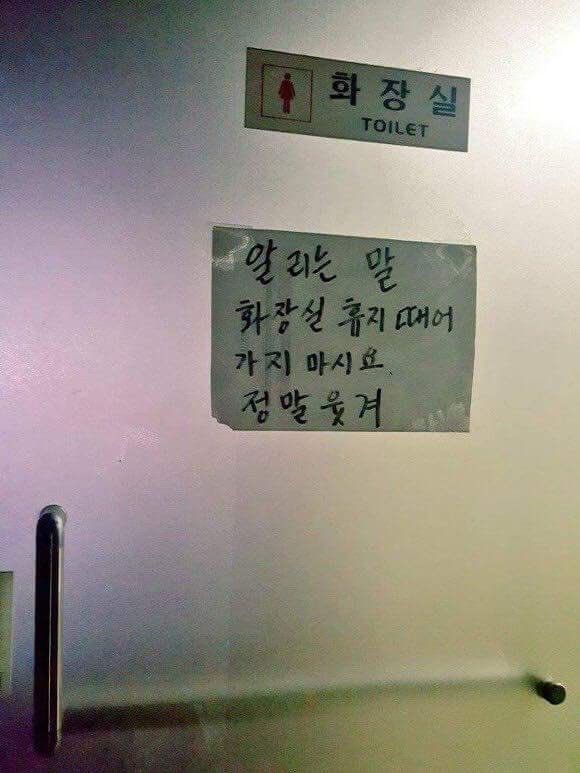 화장실
TOILET
알리는 말
화장실 휴지 때어
가지 마시요.
정말 웃겨